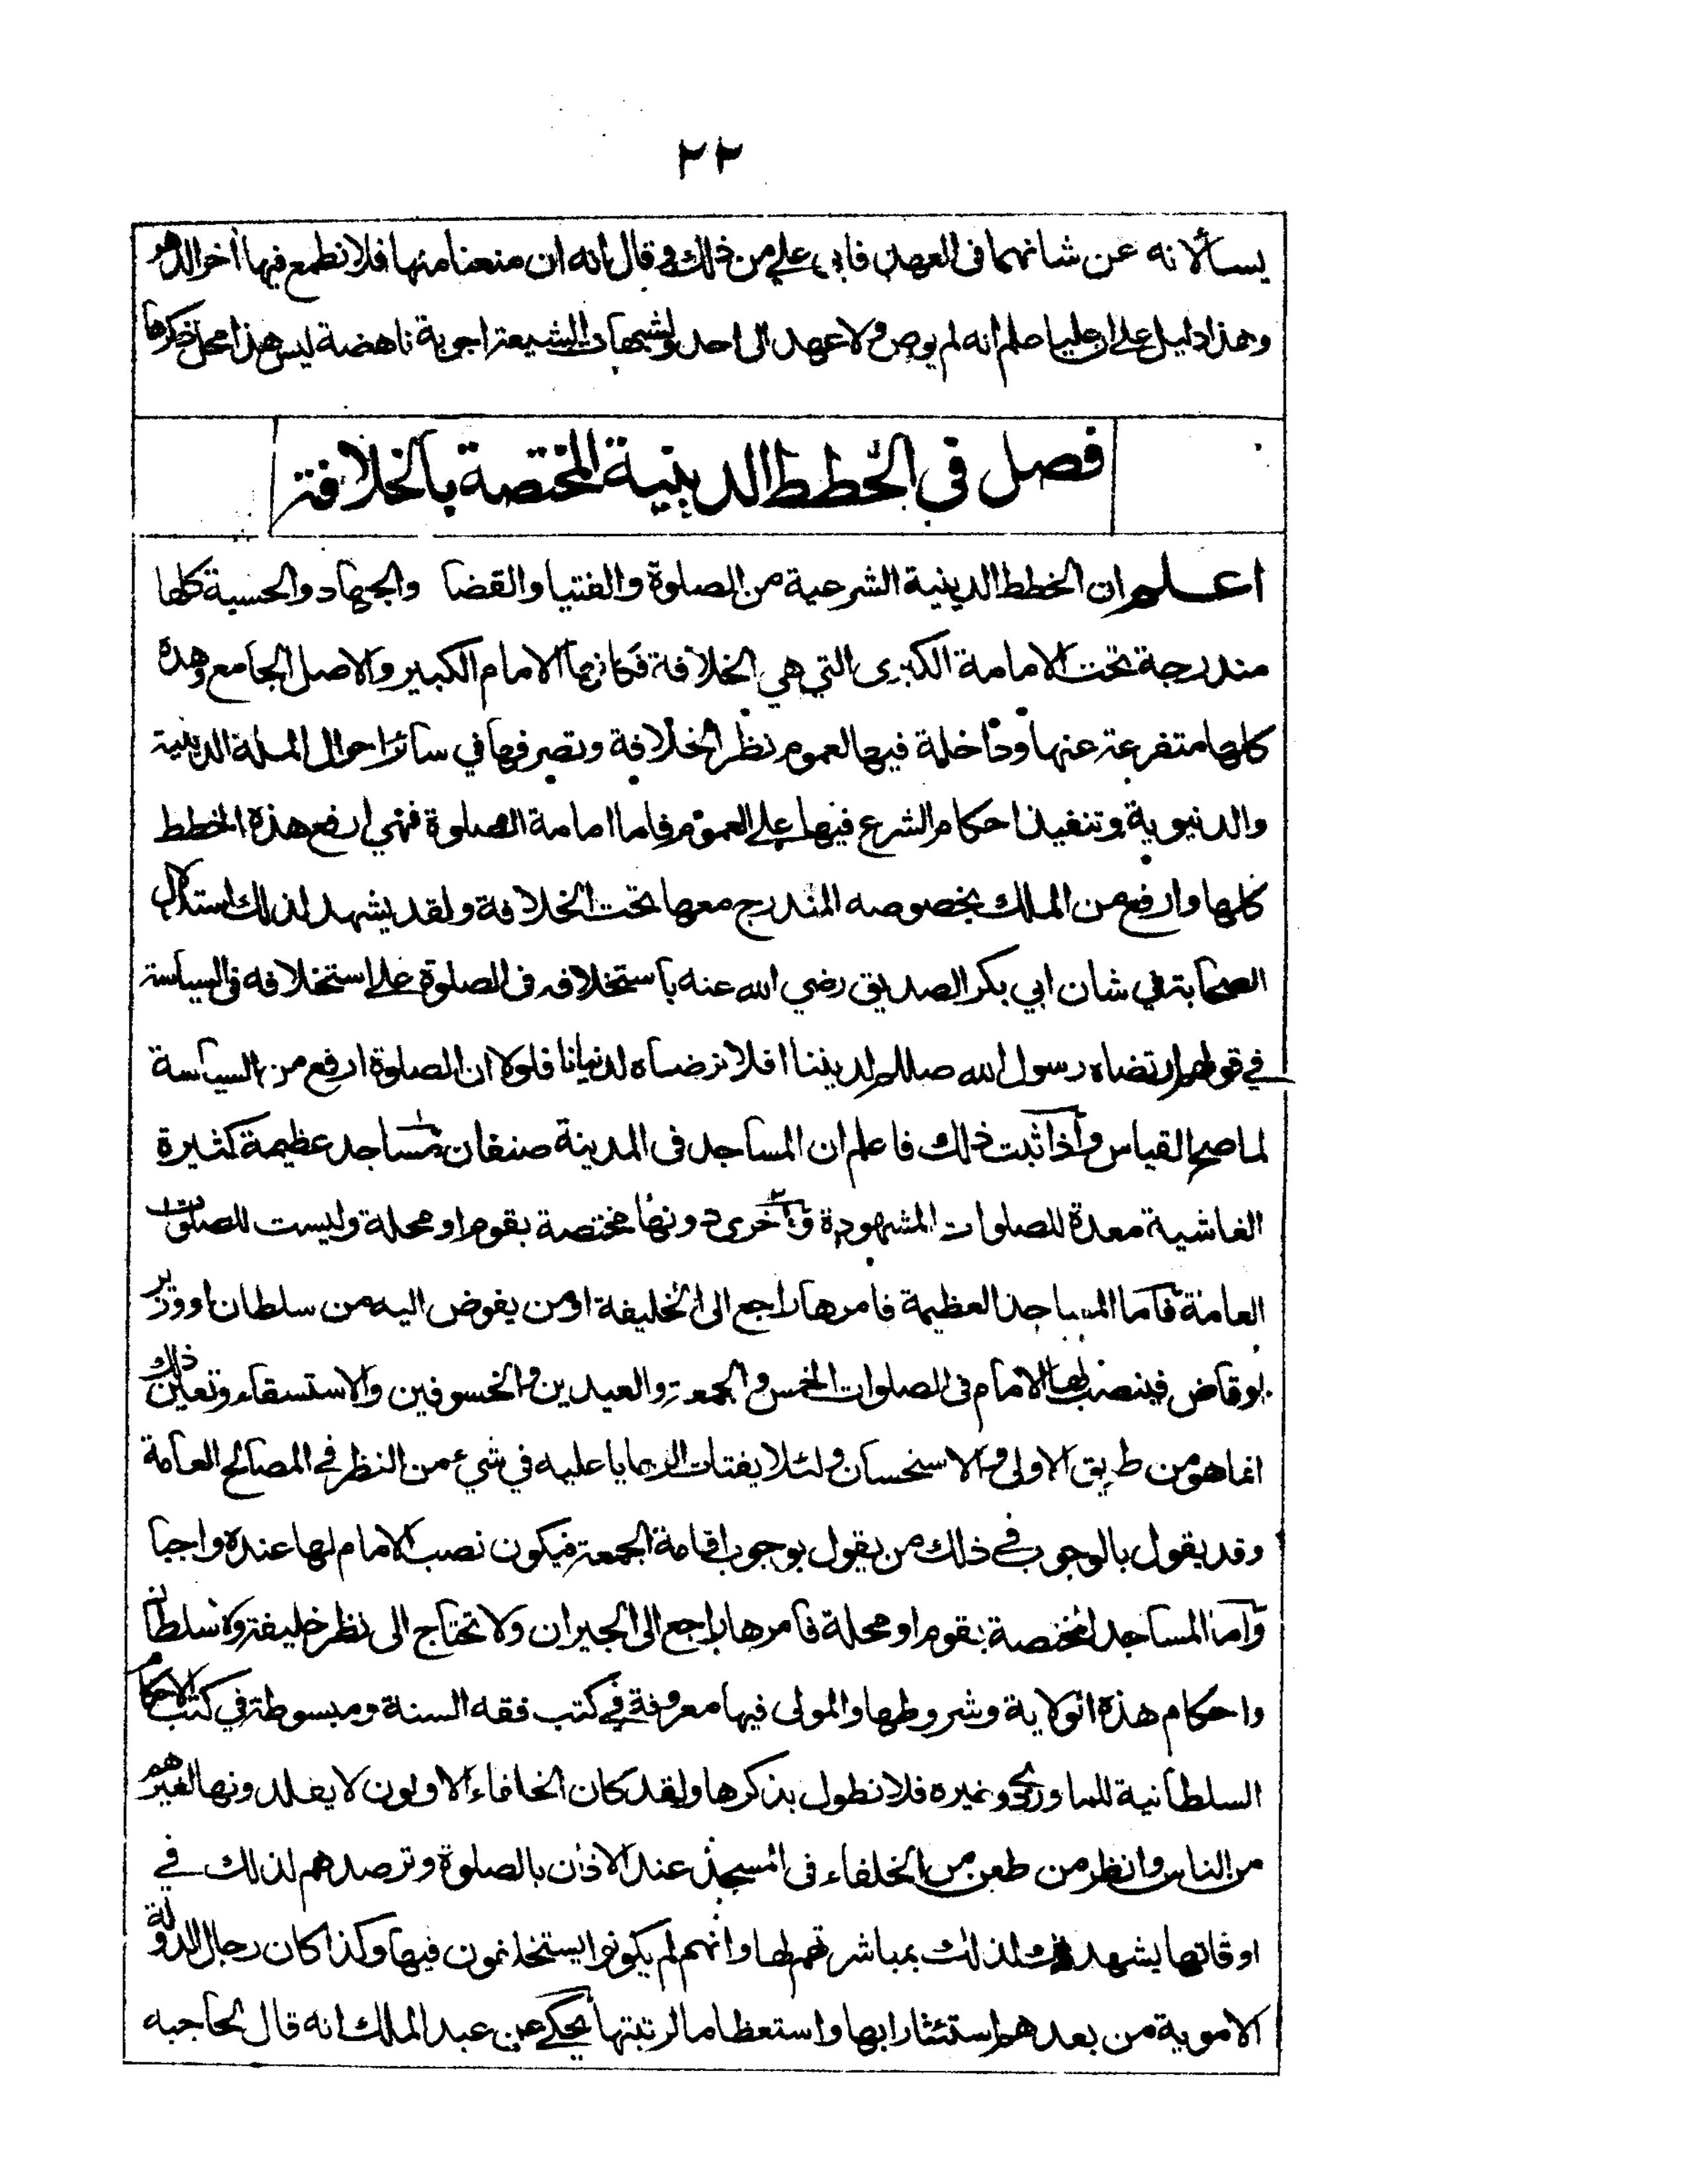 ٢٢
يسألانه عن شانهما فى العهد فابى علي من ذلك وقال انه ان منعنا منها فلا نطمع فيها اخر الدهر
وهذا دليل على ان عليا علم انه لم يوص ولا عهد الى احد ولشبهات الشيعة اجوبة ناهضة ليس هذا محل ذكرها
فصل في الخطط الدينية المختصة بالخلافة
اعلم ان الخطط الدينية الشرعية من الصلوة والفتيا والقضا والجهاد والحسبة كلها
مندرجة تحت الامامة الكبرى التي هي الخلافة فكانها الامام الكبير والاصل الجامع وهذه
كلها متفرعة عنها وداخلة فيها لعموم نظر الخلافة وتصرفها في سائر احوال الملة الدينية
والدنيوية وتنفيذ احكام الشرع فيها على العموم فاما امامة الصلوة فهي ارفع هذه الخطط
كلها وارفع من الملك بخصوصه المندرج معها تحت الخلافة ولقد يشهد لذلك استدلال
الصحابة في شان ابي بكر الصديق رضي الله عنه باستخلافه فى الصلوة على استخلافه فى السياسة
في قولهم ارتضاه رسول الله صللم لديننا افلا نرضاه لدنيانا فلولا ان الصلوة ارفع من السياسة
لما صح القياس واذا ثبت ذلك فاعلم ان المساجد فى المدينة صنفان مساجد عظيمة كثيرة
الغاشية معدة للصلوات المشهودة واخرى دونها مختصة بقوم او محلة وليست للصلوات
العامة فاما المساجد العظيمة فامرها راجع الى الخليفة او من يفوض اليه من سلطان او وزير
او قاض فينصب لها الامام فى الصلوات الخمس والجمعة والعيدين والخسوفين والاستسقاء وتعين ذلك
انما هو من طريق الاولى والاستحسان ولئلا يفتات الرعايا عليه في شيء من النظر في المصالح العامة
وقد يقول بالوجوب في ذلك من يقول بوجوب اقامة الجمعة فيكون نصب الامام لها عنده واجبا
واما المساجد المختصة بقوم او محلة فامرها راجع الى الجيران ولا تحتاج الى نظر خليفة ولا سلطان
واحكام هذه الولاية وشروطها والمولى فيها معروفة في كتب فقه السنة ومبسوطة في كتب الاحكام
السلطانية للماوردي وغيره فلا نطول بذكرها ولقد كان الخلفاء الاولون لا يقلدونها لغيرهم
من الناس وانظر من طعن من الخلفاء فى المسجد عند الاذان بالصلوة وترصدهم لذلك في
اوقاتها يشهد لذلك بمباشرتهم لها وانهم لم يكونوا يستخلفون فيها وكذا كان رجال الدولة
الاموية من بعدهم استئثارا بها واستعظاما لرتبتها يحكى عن عبد الملك انه قال لحاجبه